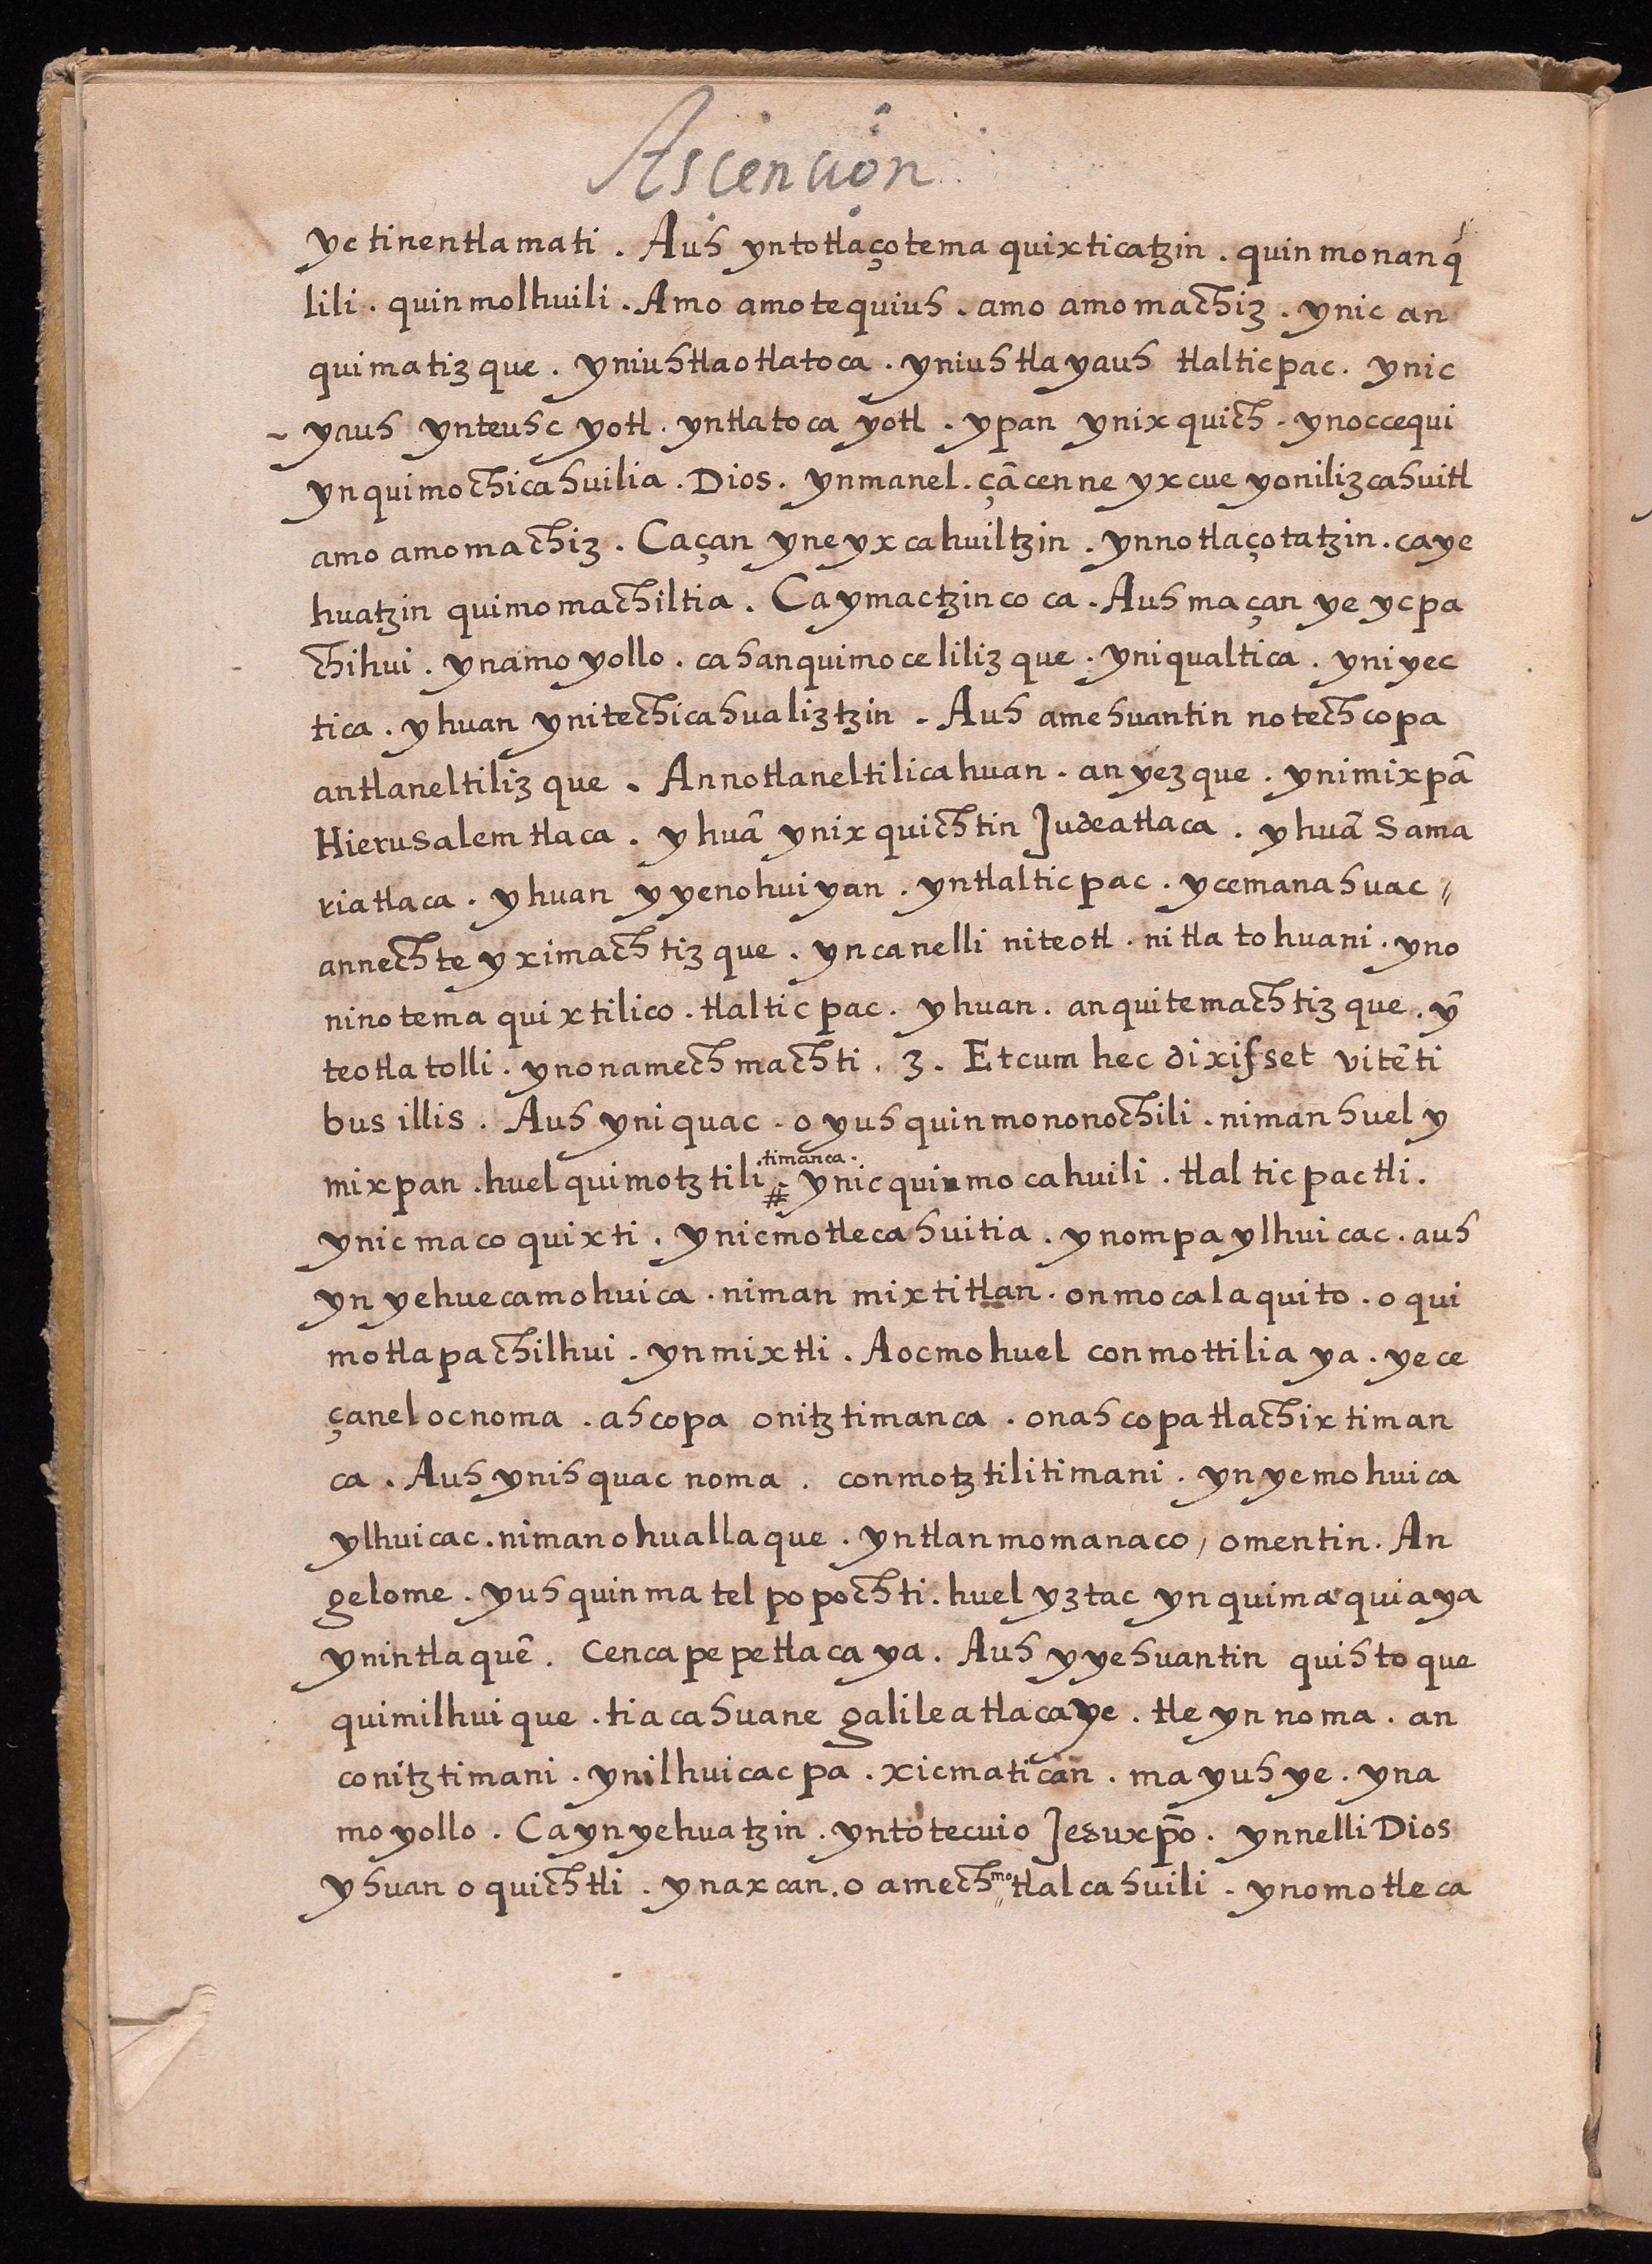 Ascencion
yc tinentlamati . Auh yntotlaçotemaquixticatzin . quinmonanq́
lili . quinmolhuili . Amo amotequiuh . amo amomachiz . ynic an
quimatizque . yniuhtlaotlatoca . yniuhtlayauh tlalticpac . ynic
~ yauh ynteuhcyotl . yntlatocayotl . ypan ynixquich . ynoccequi
ynquimochicahuilia . Dios . ynmanel . çācenneyxcueyonilizcahuitl
amo amomachiz . Caçan yneyxcahuiltzin . ynnotlaçotatzin . caye
huatzin quimomachiltia . Caymactzinco ca . Auh maçan ye ycpa
chihui . ynamoyollo . cahanquimocelilizque . yniqualtica . yniyec
tica . yhuan ynitechicahualiztzin . Auh amehuantin notechcopa
antlaneltilizque . Annotlaneltilicahuan . anyezque . ynimixpā
Hierusalem tlaca . yhuā ynixquichtin Judeatlaca . yhuā Sama
riatlaca . yhuan yyenohuiyan . yntlalticpac . ycemanahuac〃
annechteyximachtizque . yncanelli niteotl . nitlatohuani . yno
ninotemaquixtilico . tlalticpac . yhuan . anquitemachtizque . ȳ
teotlatolli . ynonamechmachti . 3 . Et cum hec dixisset vitēti
bus illis . Auh yniquac . o yuh quinmononochili . niman huel y
mixpan . huel quimotztili # .timanca. ynic quinmocahuili . tlalticpactli .
ynic macoquixti . ynicmotlecahuitia . ynompa ylhuicac . auh
yn yehuecamohuica . niman mixtitlan . onmocalaquito . o qui
motlapachilhui . ynmixtli . Aocmohuel conmottiliaya . yece
çanel ocnoma . ahcopa onitztimanca . onahcopatlachixtiman
ca . Auh ynihquac noma . conmotztilitimani . ynyemohuica
ylhuicac . niman ohuallaque . yntlanmomanaco / omentin . An
gelome . yuhquinma telpopochti . huel yztac ynquimaquiaya
ynintlaquē . Cencapepetlacaya . Auh yyehuantin quihtoque
quimilhuique . tiacahuane galileatlacaye . tle ynnoma . an
conitztimani . ynilhuicacpa . xicmatican . ma yuh ye . yna
moyollo . Ca yn yehuatzin . yntotecuio Jesuxp̄o . ynnelli Dios
yhuan oquichtli . ynaxcan . o amechmotlalcahuili . ynomotleca